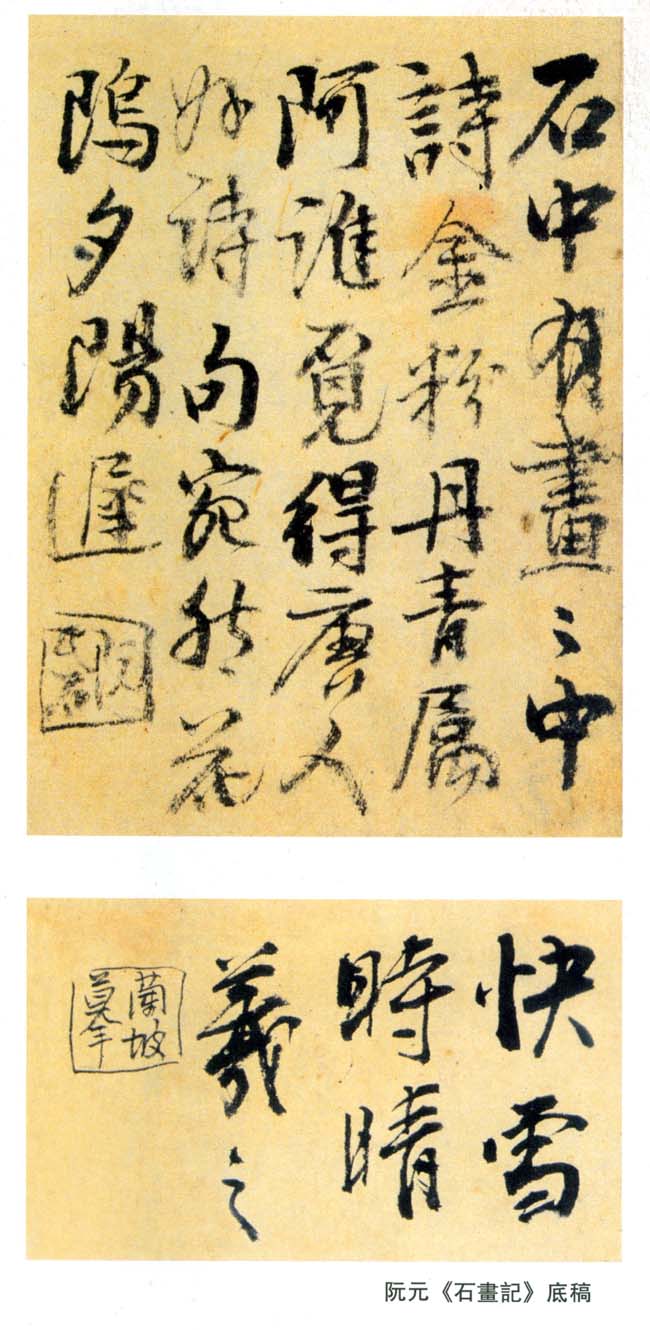 石中有畫〻中
詩金粉丹青属
阿誰覓得唐人
好詩句宛然花
隖夕陽遲
快雪
時晴
羲之
蘭坡
摹
阮元《石畫記》底稿